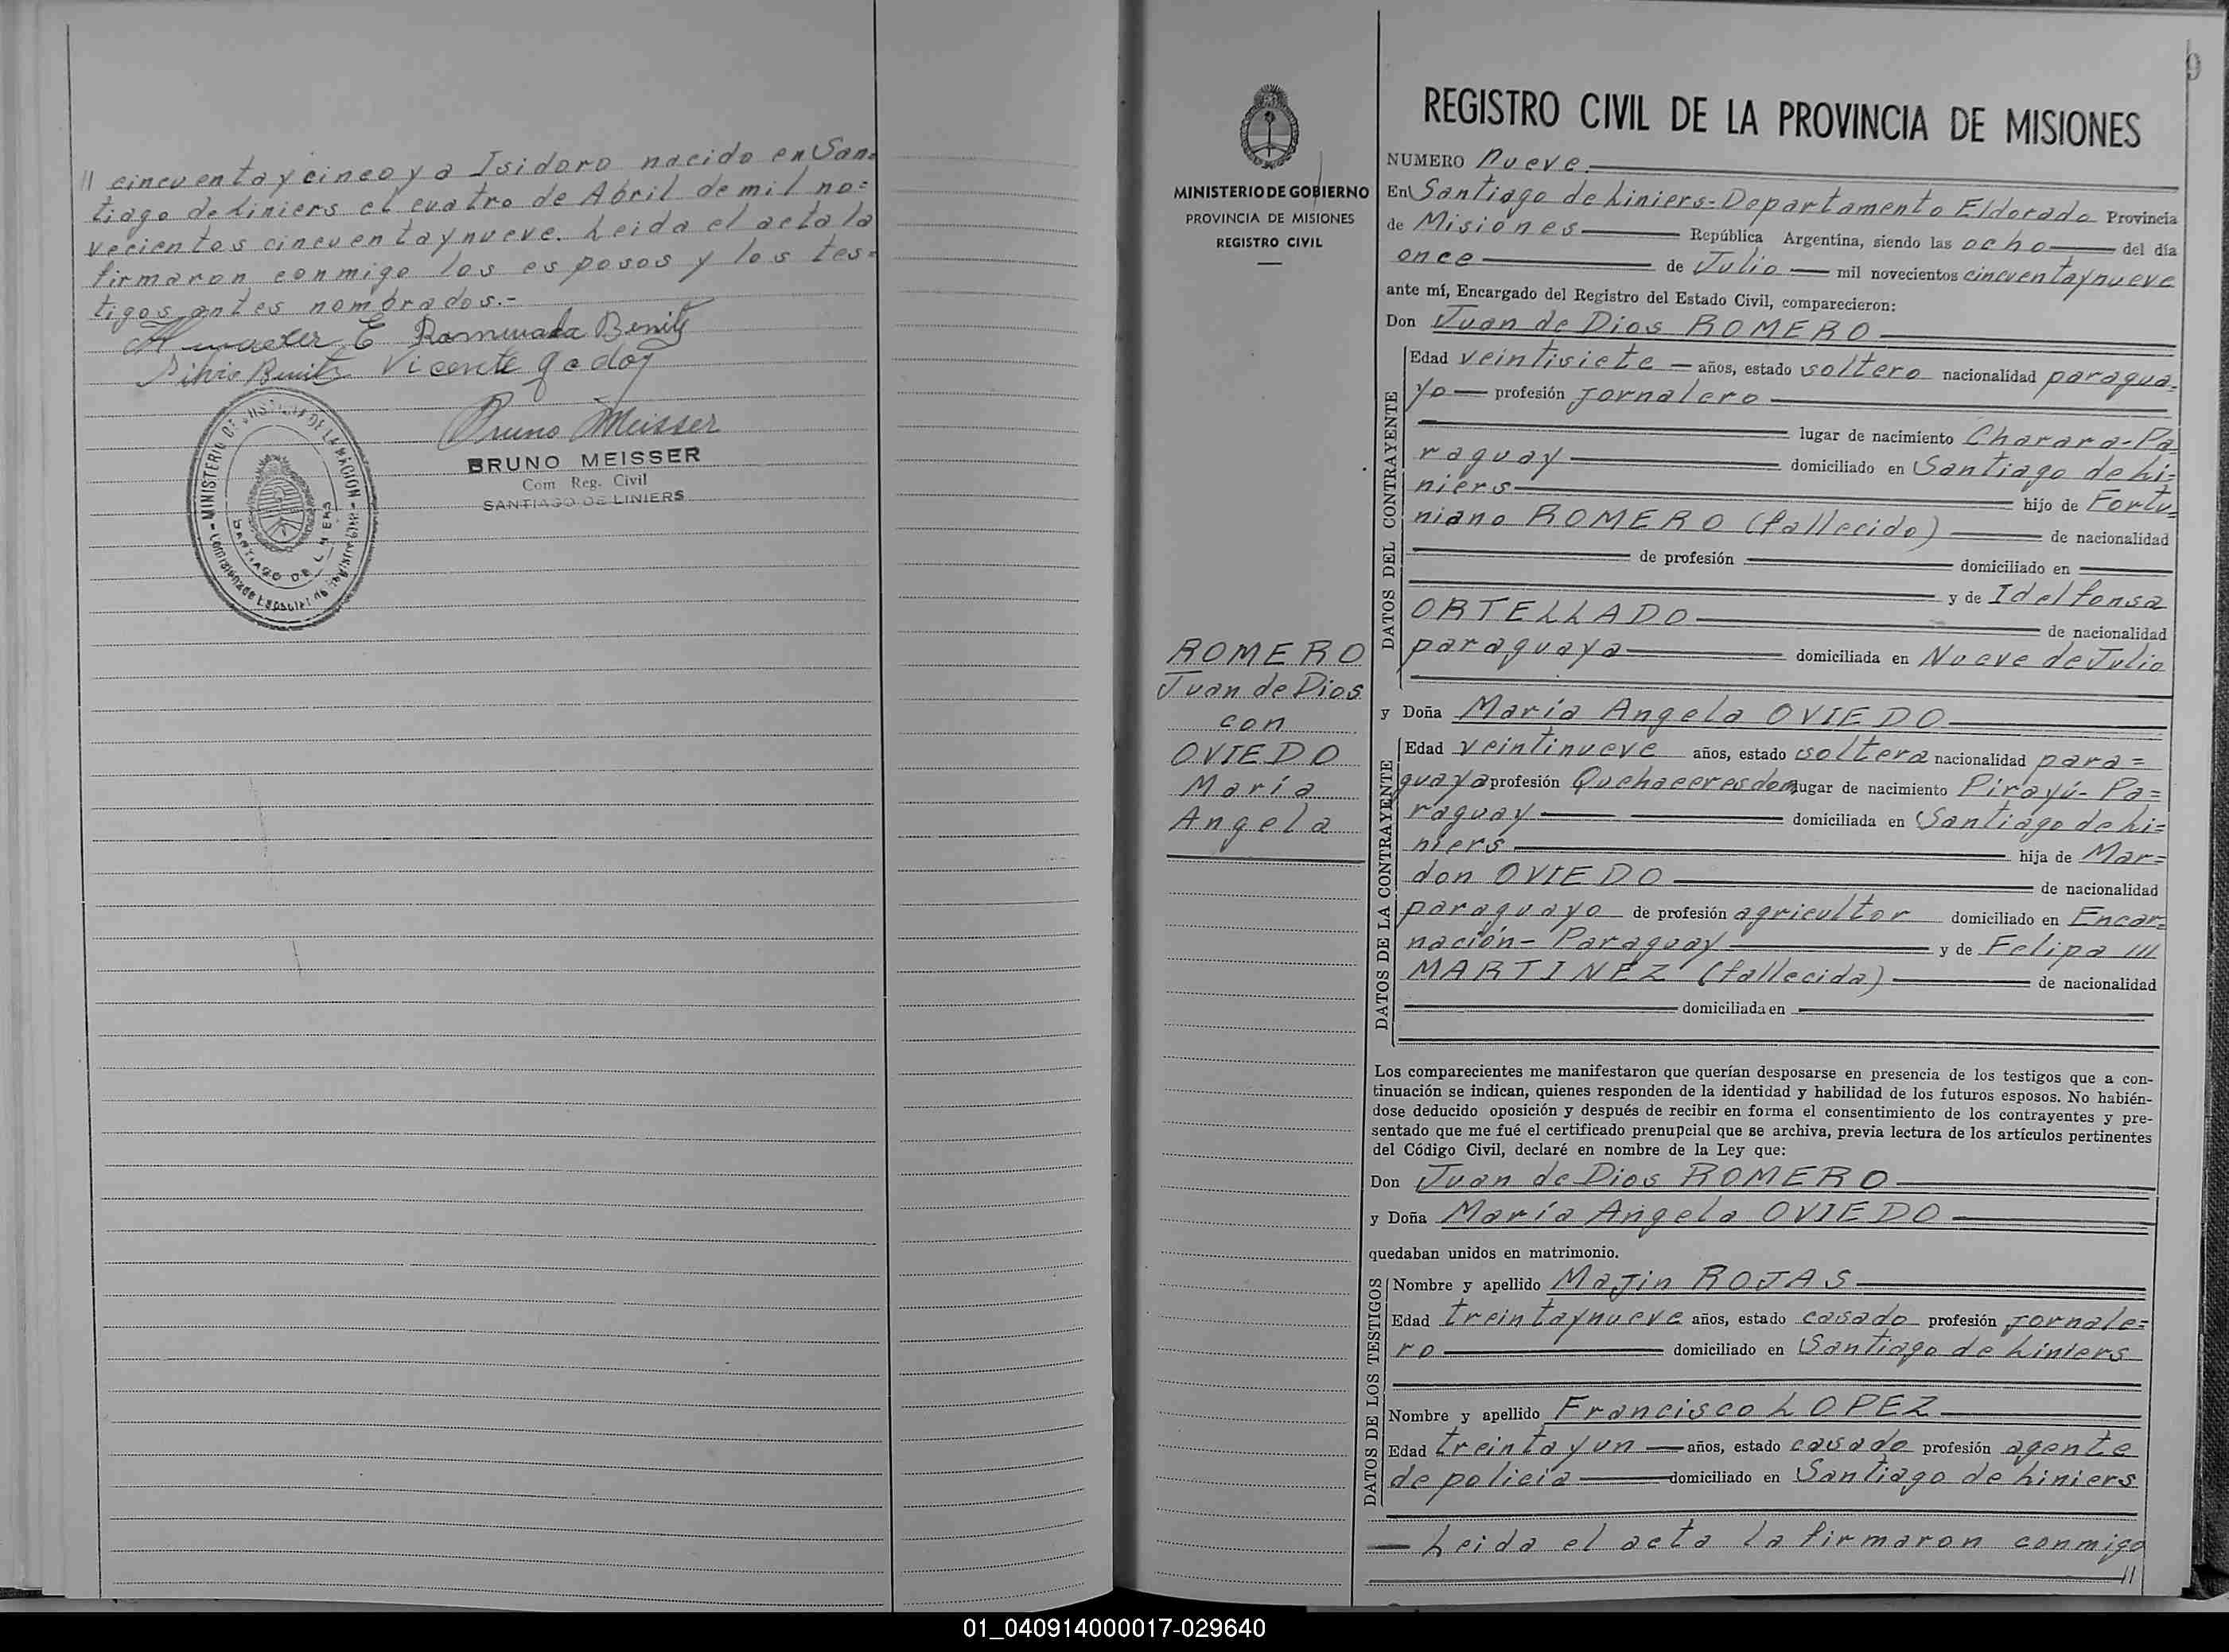 // cincuenta y cinco y a Isidoro nacido en San=
tiago de Liniers el cuatro de Abril de mil no=
vecientos cincuentaynueve. Leida el acta la
firmaron conmigo los esposos y los tes=
tigos antes nombrados.-
E Romualda Benitz
Silvio Benitz Vicente Godoy
Bruno Meisser
BRUNO MEISSER
Com Reg. Civil
SANTIAGO DE LINIERS
MINISTERIO DE JUSTICIA DE LA NACION
SANTIAGO DE LINIERS
9
MINISTERIO DE GOBIERNO
PROVINCIA DE MISIONES
REGISTRO CIVIL
ROMERO
Juan de Dios
con
OVIEDO
María
Angela
REGISTRO CIVIL DE LA PROVINCIA DE MISIONES
NUMERO nueve.
En Santiago de Liniers-Departamento Eldorado Provincia
de Misiones República Argentina, siendo las ocho del día
once de Julio mil novecientos cincuentaynueve
ante mí, Encargado del Registro del Estado Civil, comparecieron:
Don Juan de Dios ROMERO
DATOS DEL CONTRAYENTE
Edad veintisiete años, estado soltero nacionalidad paragua=
yo profesión jornalero
lugar de nacimiento Charara-Pa=
raguay domiciliado en Santiago de Li=
niers hijo de Fortu=
niano ROMERO (fallecido) de nacionalidad
de profesión domiciliado en
y de Idelfonsa
ORTELLADO de nacionalidad
paraguaya domiciliada en Nueve de Julio
y Doña María Angela OVIEDO
DATOS DE LA CONTRAYENTE
Edad veintinueve años, estado soltera nacionalidad para=
guaya profesión Quehaceres dom. lugar de nacimiento Pirayú- Pa=
raguay domiciliada en Santiago de Li=
niers hija de Mar=
don OVIEDO de nacionalidad
paraguayo de profesión agricultor domiciliado en Encar=
nación- Paraguay y de Felipa ///
MARTINEZ (fallecida) de nacionalidad
domiciliada en
Los comparecientes me manifestaron que querían desposarse en presencia de los testigos que a con-
tinuación se indican, quienes responden de la identidad y habilidad de los futuros esposos. No habién-
dose deducido oposición y después de recibir en forma el consentimiento de los contrayentes y pre-
sentado que me fué el certificado prenupcial que se archiva, previa lectura de los artículos pertinentes
del Código Civil, declaré en nombre de la Ley que:
Don Juan de Dios ROMERO
y Doña María Angela OVIEDO
quedaban unidos en matrimonio.
DATOS DE LOS TESTIGOS
Nombre y apellido Majin ROJAS
Edad treintaynueve años, estado casado profesión jornale=
ro domiciliado en Santiago de Liniers
Nombre y apellido Francisco LOPEZ
Edad treinta y un años, estado casado profesión agente
de policía domiciliado en Santiago de Liniers
— Leida el acta la firmaron conmigo
//
01_040914000017-029640